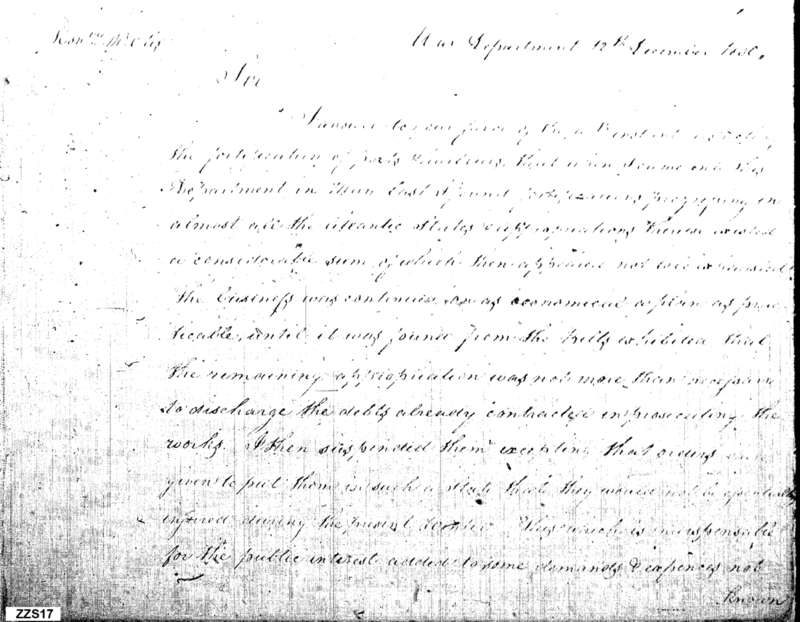 Honble Mr Otis
War Department 12th December 180
Sir
In answer to your favor of the instant respecting
the fortification of ports & harbours that when I came into this
Department in June last I found fortifications progressing in
almost all the atlantic States & appropriations therein existed
a considerable sum of which then appeared not to be expended
The business was continued on as economical a plan as prac
ticable, until it was found from the bills exhibited that
the remaining appropriation was not more than necessary
to discharge the debts already contracted in prosecuting the
works. I then suspended them excepting that orders were
given to put them in such a state that they would not be essentially
injured during the present Winter. This which is indispensable
for the public interest added to some demands & expences not
Known
ZZS17